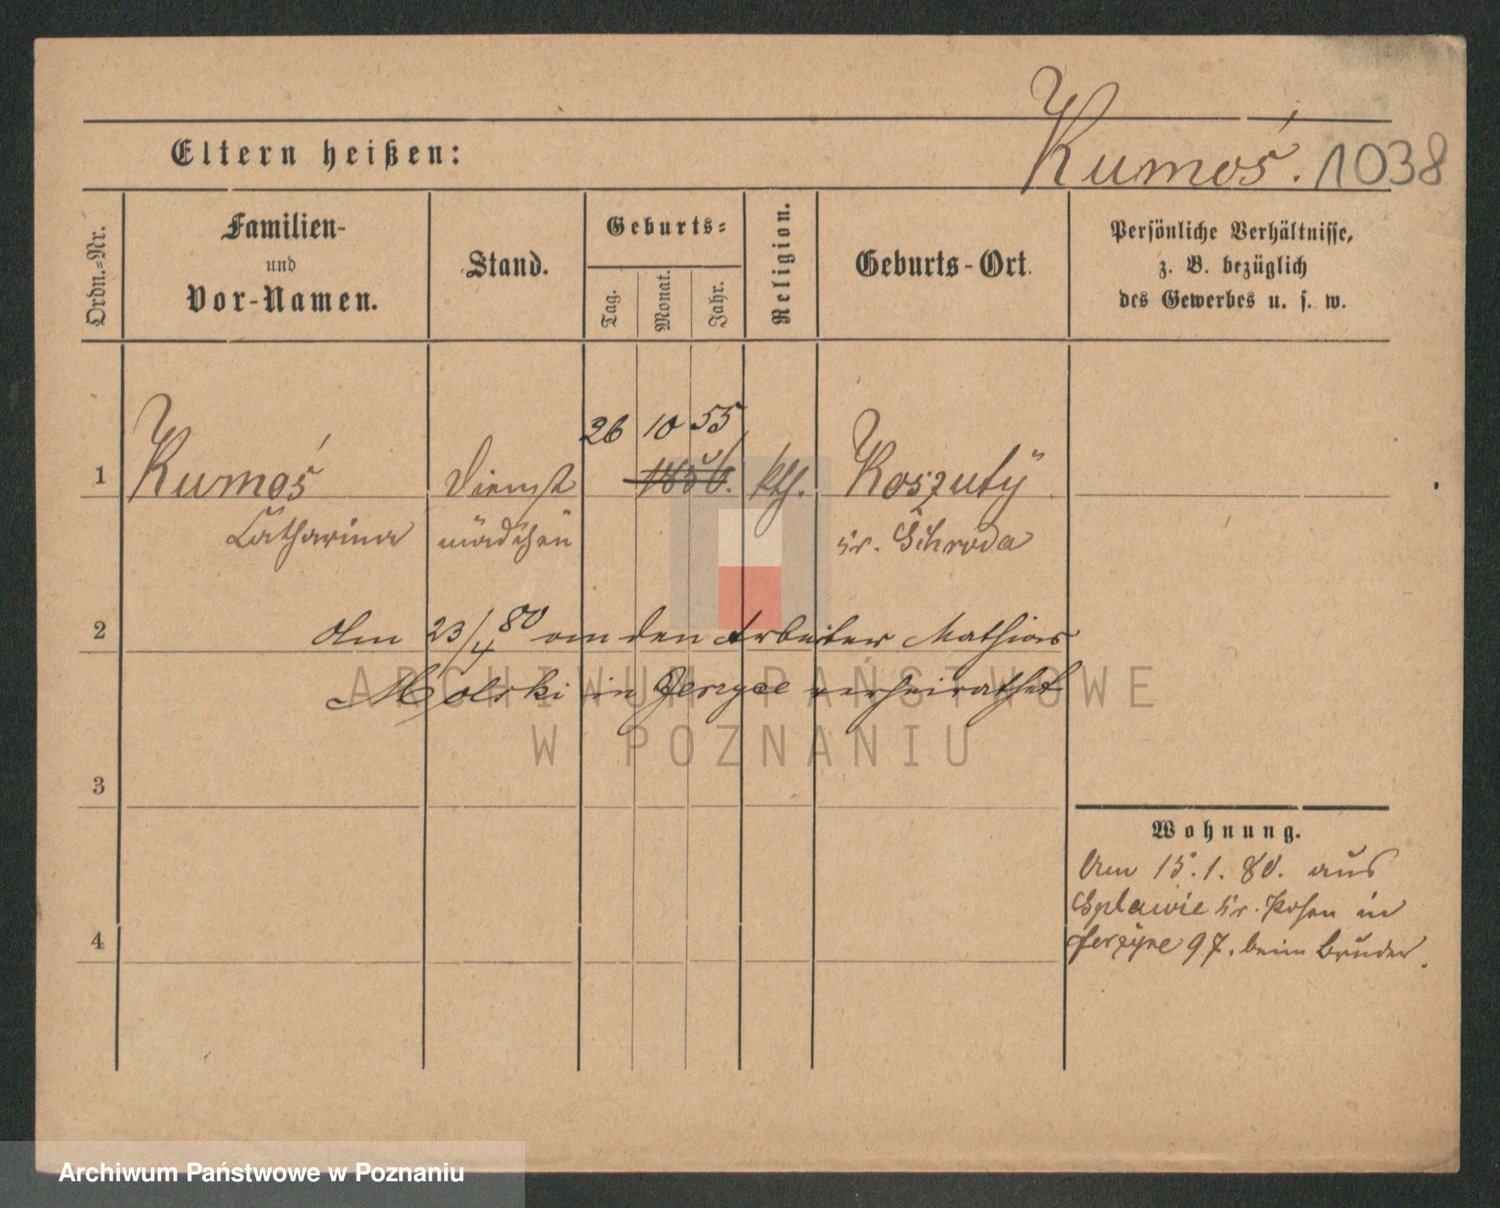 Kumoś. 1038
Eltern heißen:
Ordn.=Nr.
Familien-
und
Vor-Namen.
Stand.
Geburts=
Tag.
Monat.
Jahr.
Religion.
Geburts-Ort.
Persönliche Verhältnisse,
z. B. bezüglich
des Gewerbes u. s. w.
26 10 55
1 Kumoś Dienst 1856. kth. Koszuty
Catharina mädchen Kr. Schroda
2 Am 23/4 80 an den Arbeiter Mathias
Molski in Jerzyce verheirathet
ARCHIWUM PAŃSTWOWE
W POZNANIU
3
Wohnung.
Am 15.1.80. aus
Splawie Kr. Posen in
4 Jerzyce 97. beim Bruder.
Archiwum Państwowe w Poznaniu